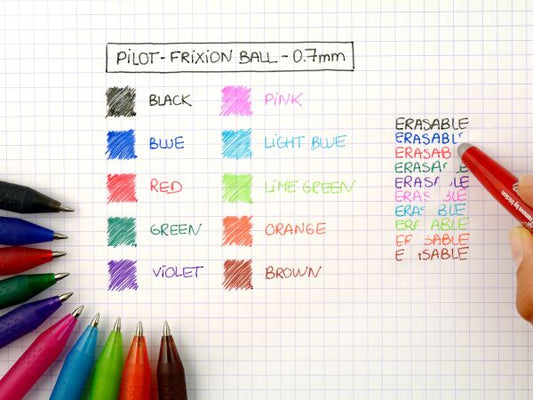 PILOT-FRIXION BALL-0.7mm
BLACK
BLUE
RED
GREEN
VIOLET
PINK
LIGHT BLUE
LIME GREEN
ORANGE
BROWN
ERASABLE
ERASABLE
ERASAB
ERASA
ERAS
ERAS BL
ERAS BLE
ERA ABLE
ER SABLE
E SABLE